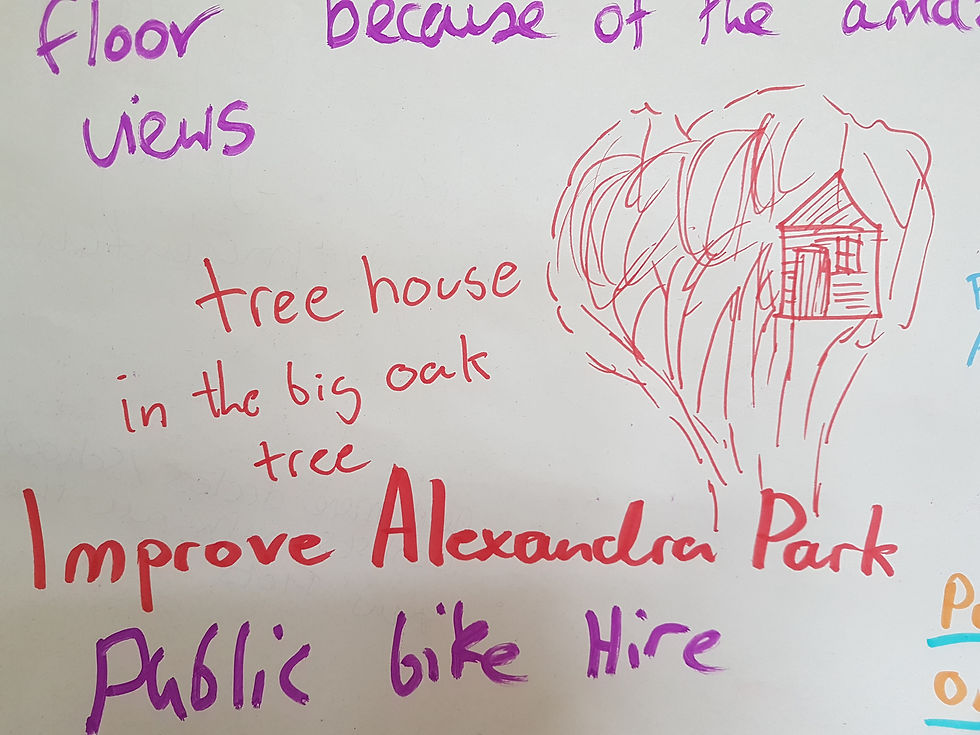 floor because of the
views
tree house
in the big oak
tree
Improve Alexandra Park
Public bike Hire